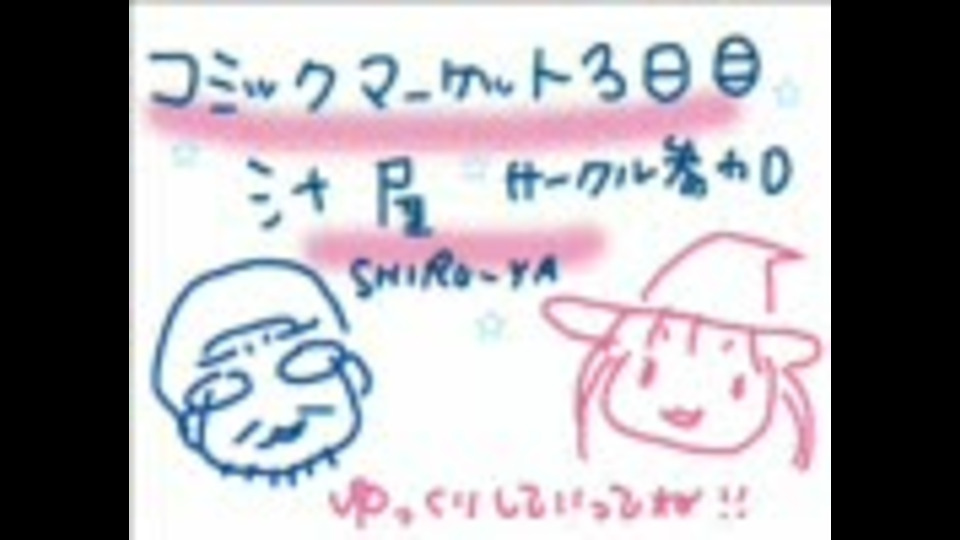 コミックマーケット3日目
汁屋 サークル参加
SHIRU-YA
ゆっくりしていってね!!